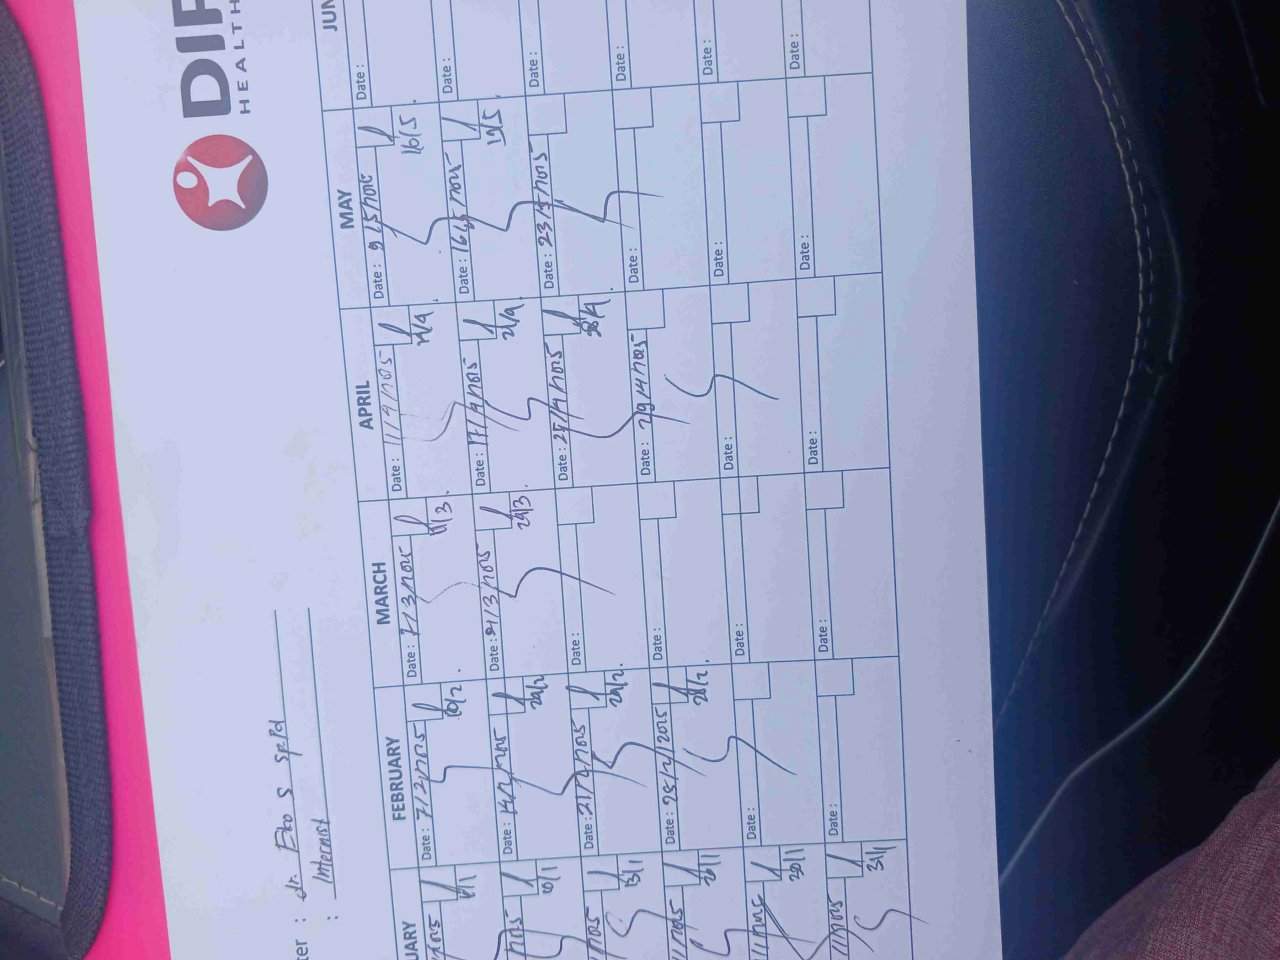 DIP
HEALTH
ter : dr. Eko S SpPd
: Internist
UARY
FEBRUARY
MARCH
APRIL
MAY
JUN
6/1
Date: 7/2/2025
10/2
Date: 7/3/2025
11/3
Date: 11/4/2025
Date: 9/5/2025
16/5
Date:
10/1
Date: 14/2/2025
Date: 21/3/2025
24/3
Date: 17/4/2025
21/4
Date: 16/5/2025
19/5
Date:
13/1
Date: 21/2/2025
24/2
Date:
Date: 25/4/2025
28/4
Date: 23/5/2025
Date:
20/1
Date: 28/2/2025
28/2
Date:
Date: 29/4/2025
Date:
Date:
30/1
Date:
Date:
Date:
Date:
Date:
31/1
Date:
Date:
Date:
Date:
Date: